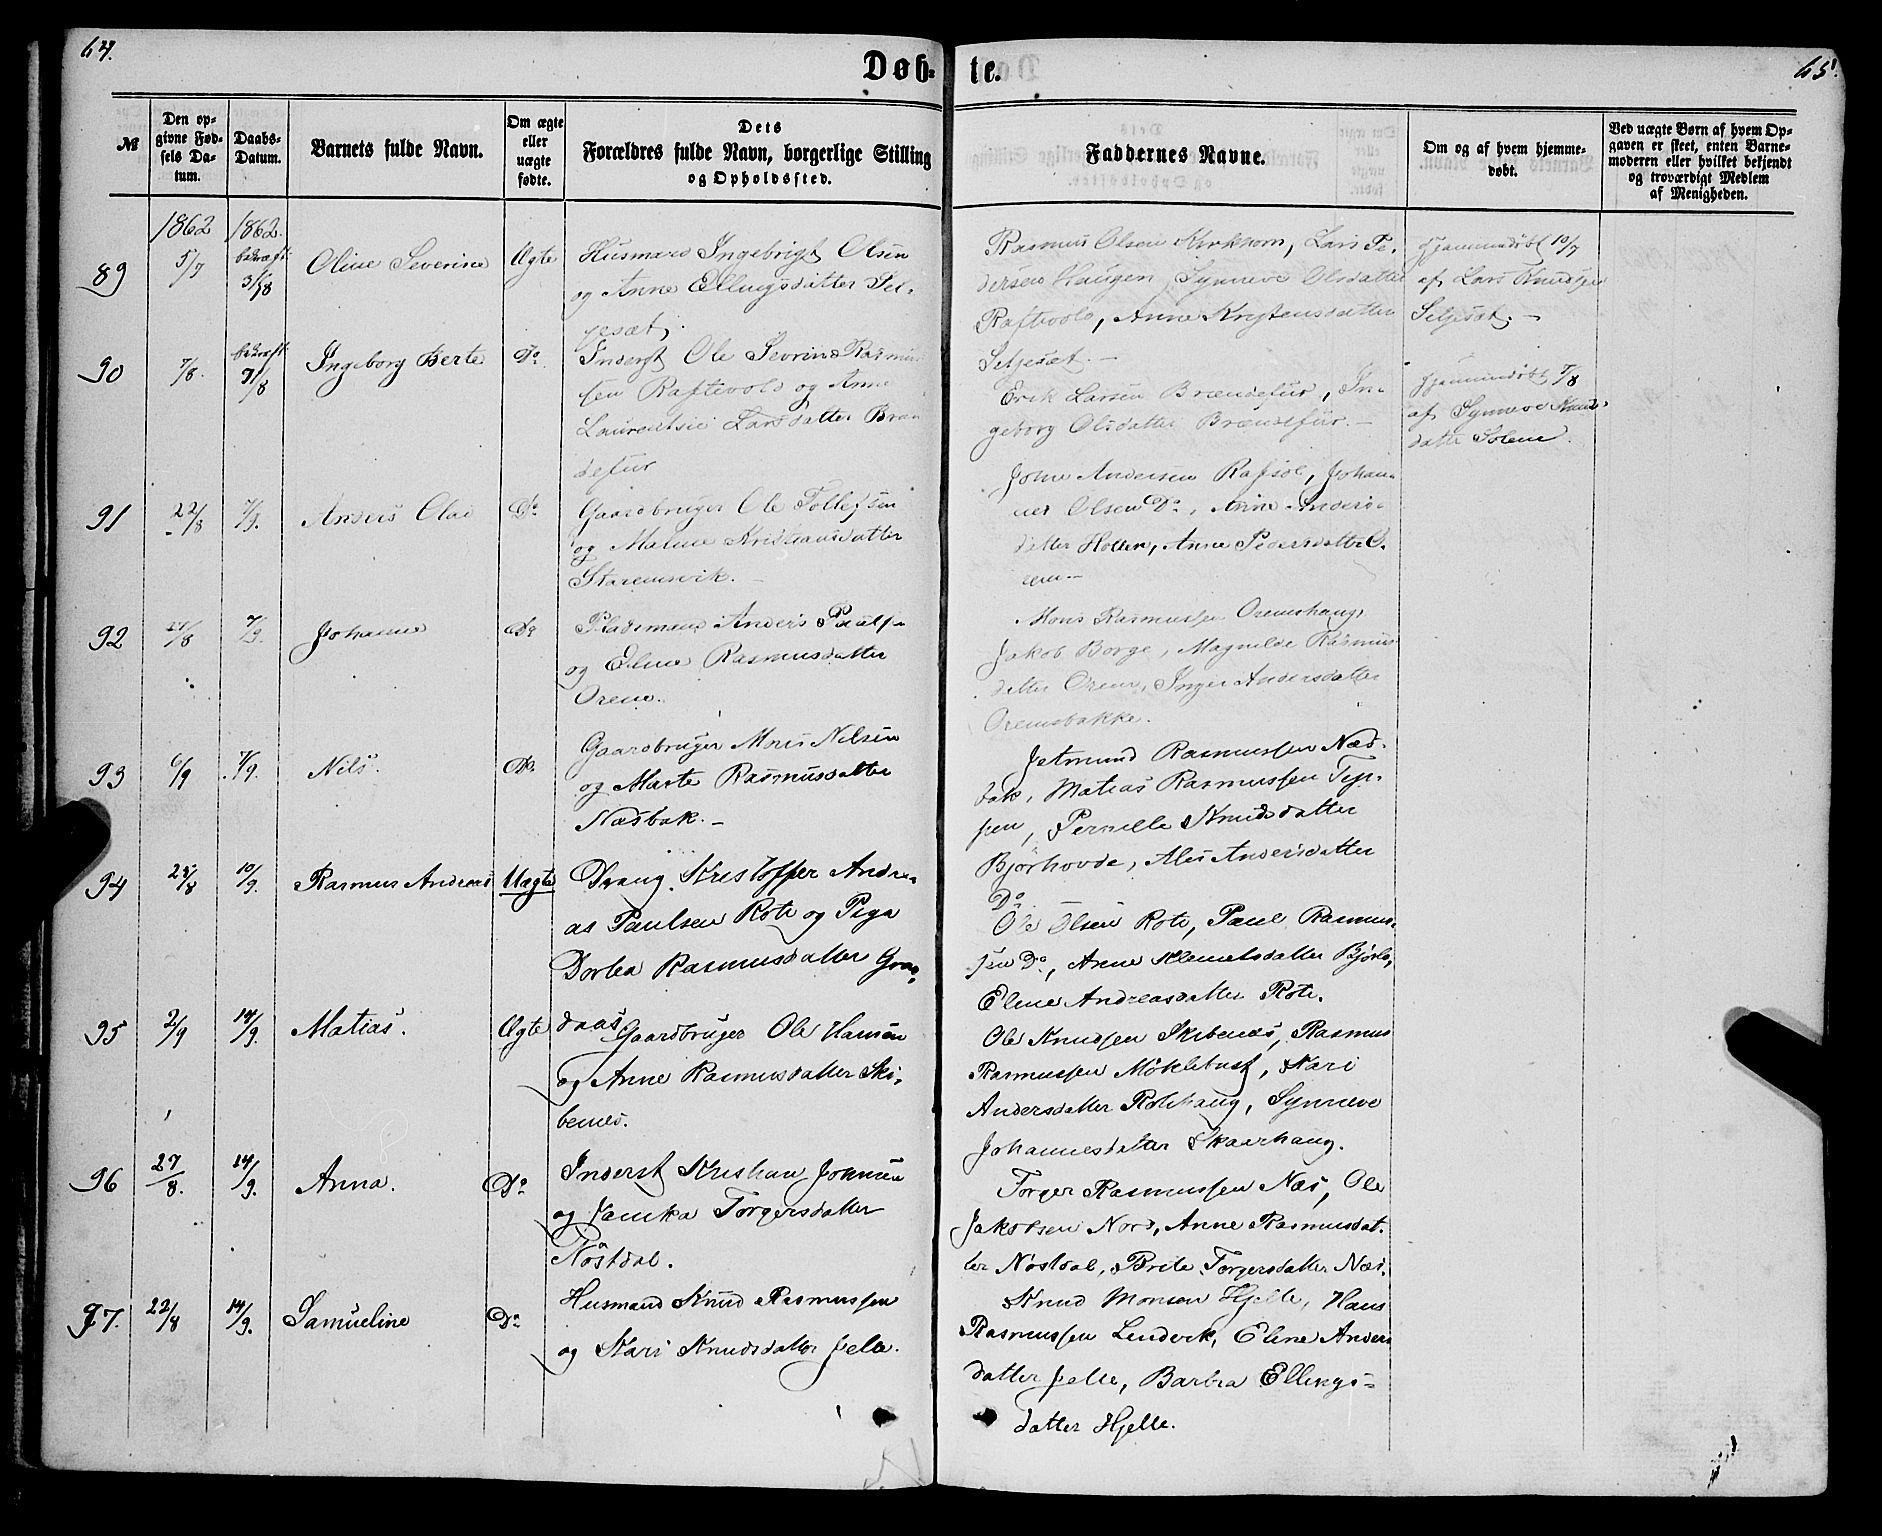 64.
65.
Døb-
te.
№
Den op-
givne Fød-
sels Da-
tum.
Daabs-
Datum.
Barnets fulde Navn.
Om ægte
eller
uægte
fødte.
Dets
Forældres fulde Navn, borgerlige Stilling
og Opholdssted.
Faddernes Navne.
Om og af hvem hjemme-
døbt.
Ved uægte Børn af hvem Op-
gaven er skeet, enten Barne-
moderen eller hvilket bekjendt
og troværdigt Medlem
af Menigheden.
1862 1862.
89
5/7
31/8
Oline Severine
Ægte
Husmand Ingebrigt Olsen
og Anne Ellingsdatter Sel-
jesæt.
Rasmus Olsen Kirkhorn, Lars Pe-
dersen Haugen, Synneve Olsdatter
Raftevold, Anne Kristensdatter
Seljesæt.-
Hjemmedøbt 10/7
af Lars Knudsen
Seljesæt.-
90
7/8.
31/8
Ingeborg Berte
Do
Inderst Ole Sevrin Rasmus-
sen Raftevold og Anne
Laurentsie Larsdatter Bræn-
defur
Erik Larsen Brændefur, In-
geborg Olsdatter Brændefur.-
Hjemmedøbt 7/8
af Synneve Knuds-
datter Solem.
91
22/8
7/9.
Anders Olai
Do
Gaardbruger Ole Tollefsen
og Malene Kristiansdatter
Staremsvik.-
Johan-
nes Olsen Do, Anne Anders-
datter Hollen, Anne Pedersdatter O-
rem-
92
/8
7/9.
Johanne
Do
Pladsmand Anders Pauls.
og Eline Rasmusdatter
Orem.
Mons Rasmussen Oremshaug,
Jakob Borge, Magnilde Rasmus
datter Orem, Inger Andersdatter
Oremsbakke.
93
6/9
7/9.
Nils.
Do.
Gaardbruger Mons Nilsen
og Marte Rasmusdatter
Næsbak.-
Jetmund Rasmussen Næs-
bak, Matias Rasmussen
Pernille Knudsdatter
Bjørhovde, Ales Andersdatter
Do
94
25/8
10/9.
Rasmus Andreas
Uægte
Drang. Kristoffer Andre-
as Paulsen Rote og Piga
Dortea Rasmusdatter Gro-
daas
Ole Olsen Rote, Paul Rasmus-
sen Do, Anne Klemetsdatter Bjørlo,
Eline Andreasdatter Rote.
95
2/9
14/9.
Matias.
Ægte
Gaardbruger Ole Hansen
og Anne Rasmusdatter Ski-
benes.
Ole Knudsen Skibenes, Rasmus
Rasmussen Møklebust, Kari
Andersdatter Rotehaug, Synneve
Johannesdatter Skaarhaug.
96
27/8.
14/9.
Anna.
Do
Inderst Kristian Johnsen
og Janika Torgersdatter
Nøstdal.
Torger Rasmussen Næs, Ole
Jakobsen Nord, Anne Rasmusdat-
ter Nøstdal, Brite Torgersdatter Næs.
97.
22/8
14/9.
Samueline
Do
Husmand Knud Rasmussen
og Kari Knudsdatter Jelle.
Knud Monsen Hjelle, Hans
Rasmussen Lendvik, Eline Anders
datter Jelle, Barbra Ellings-
datter Hjelle.